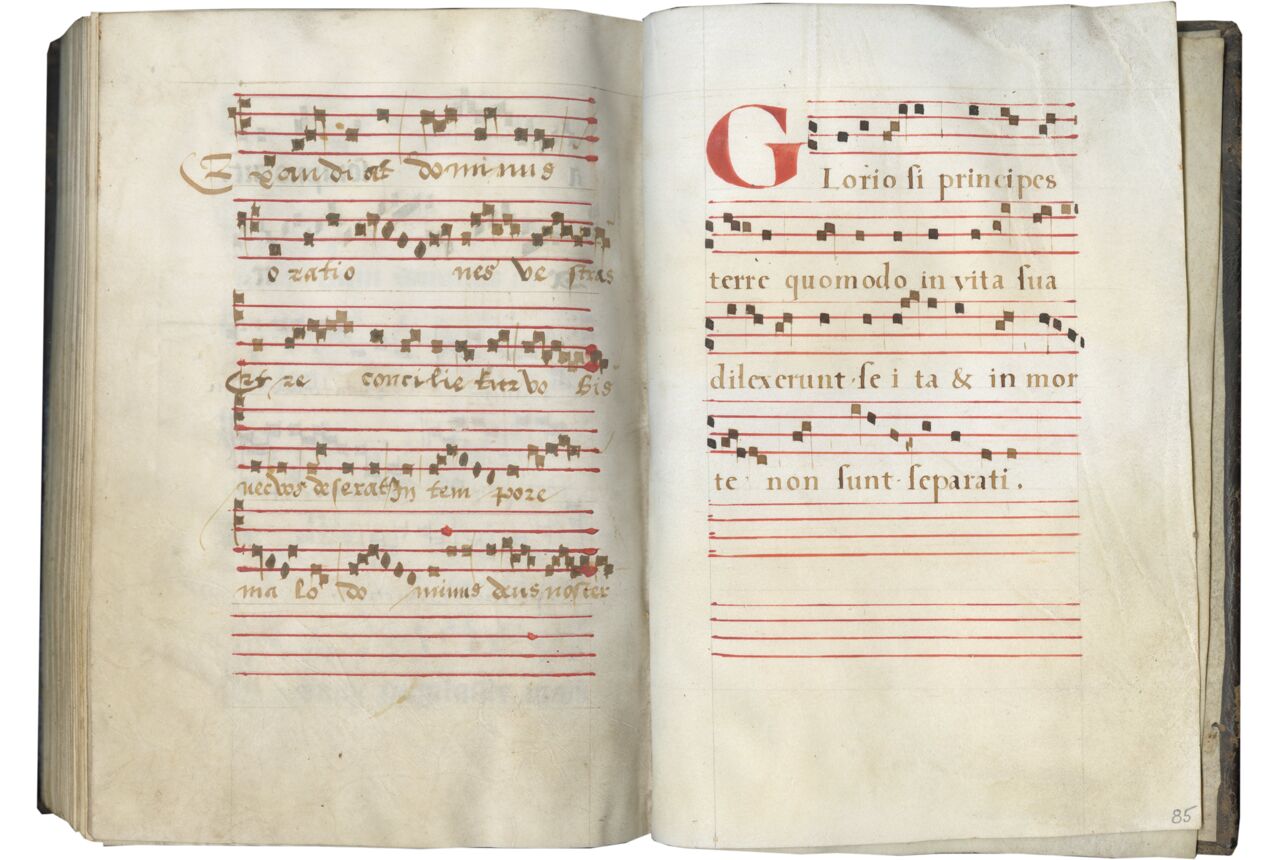 Exaudiat dominus
oratio nes ve stras
Et re concilie tur vo bis
nec vos deserat In tem pore
ma lo do minus deus noster
Glorio si principes
terrè quomodo in vita sua
dilexerunt se i ta & in mor
te non sunt separati.
85